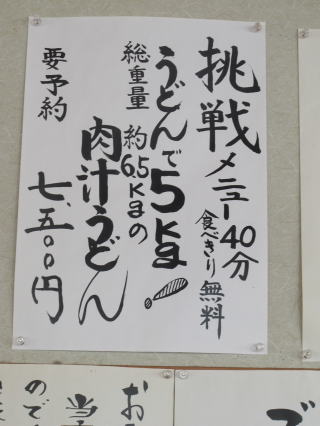 挑戦メニュー40分
食べきり無料
うどんで5kg!
総重量 約6.5kgの
肉汁うどん
七、五〇〇円
要予約
お
当
ので
で